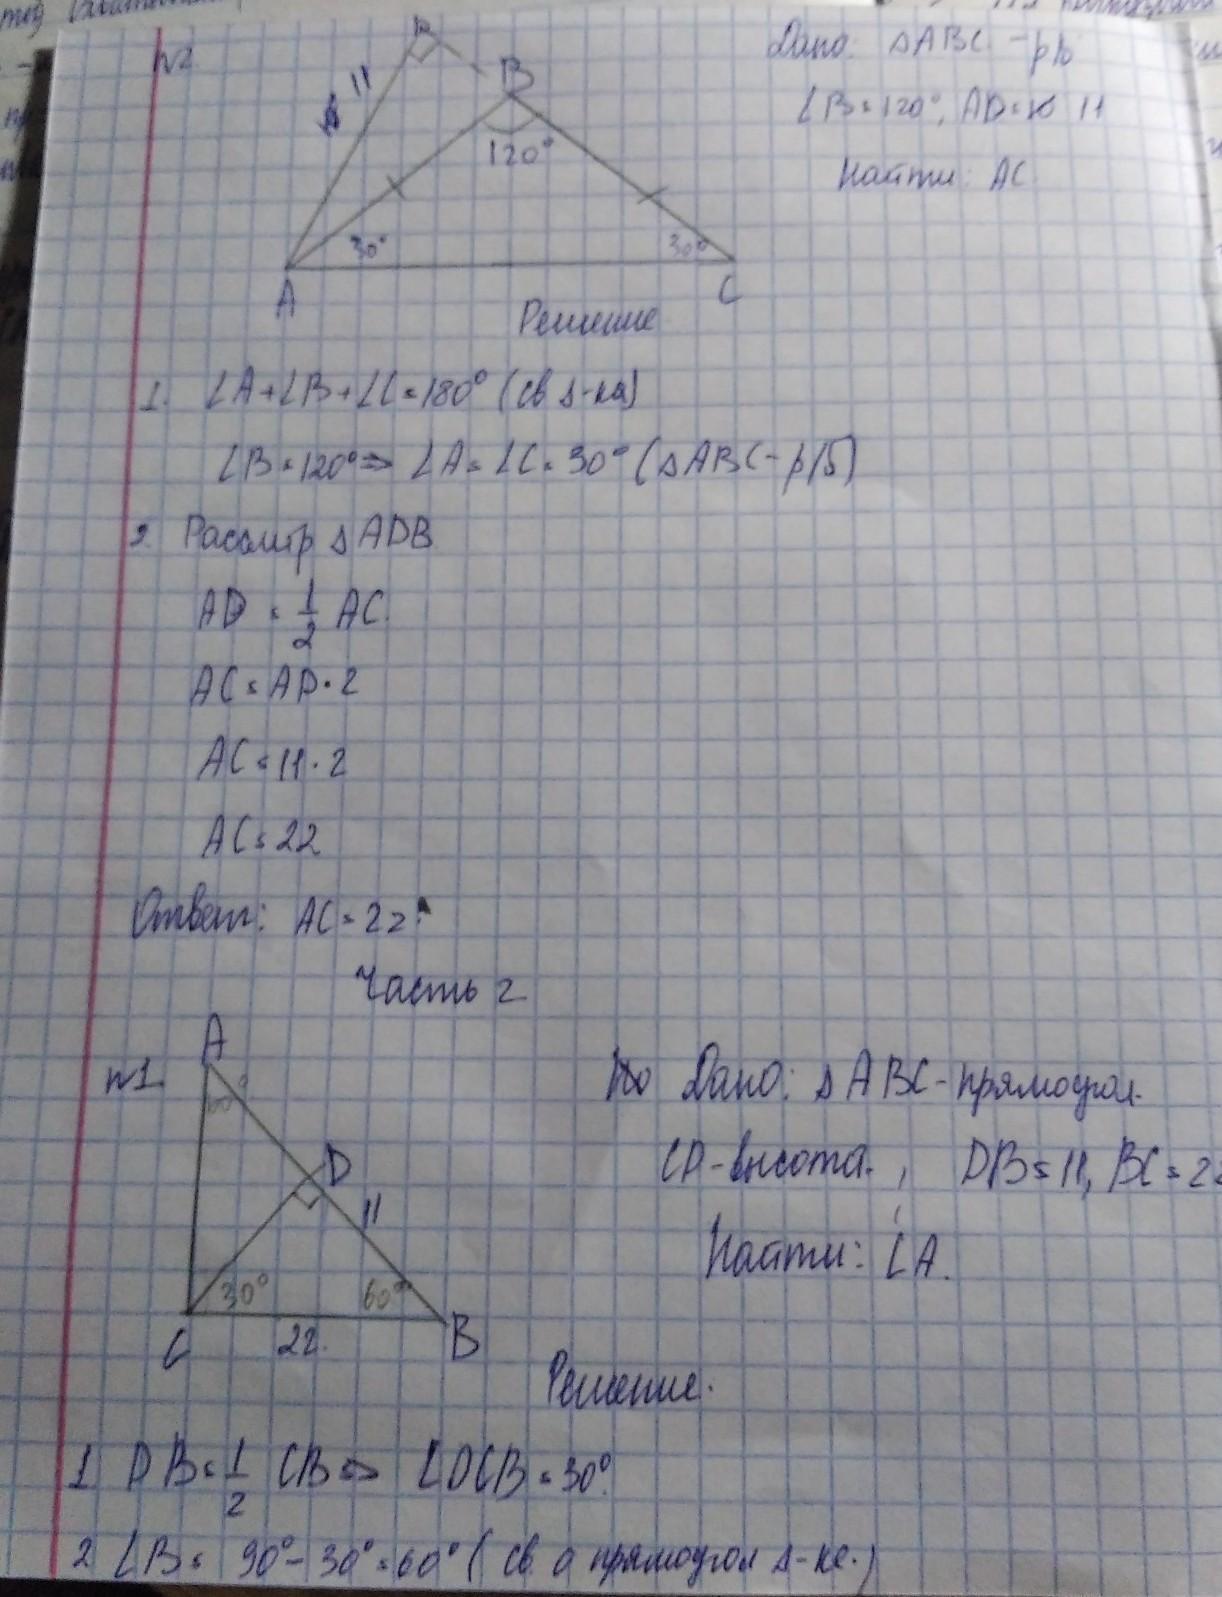 №2
11
B
120°
30°
30°
A
C
Дано: ΔABC - р/б
∠B = 120°, AD = 11
Найти: AC
Решение
1. ∠A + ∠B + ∠C = 180° (св Δ-ка)
∠B = 120° ⇒ ∠A = ∠C = 30° (ΔABC - р/б)
2. Рассмтр ΔADB
AD = 1/2 AC.
AC = AD · 2
AC = 11 · 2
AC = 22
Ответ: AC = 22
Часть 2
№1.
A
60°
D
11
30°
60°
C
22.
B
Дано: ΔABC - прямоугол.
CD - высота, DB = 11, BC = 22
Найти: ∠A.
Решение.
1 DB = 1/2 CB ⇒ ∠DCB = 30°.
2 ∠B = 90° - 30° = 60° (св. о прямоугол Δ-ке.)